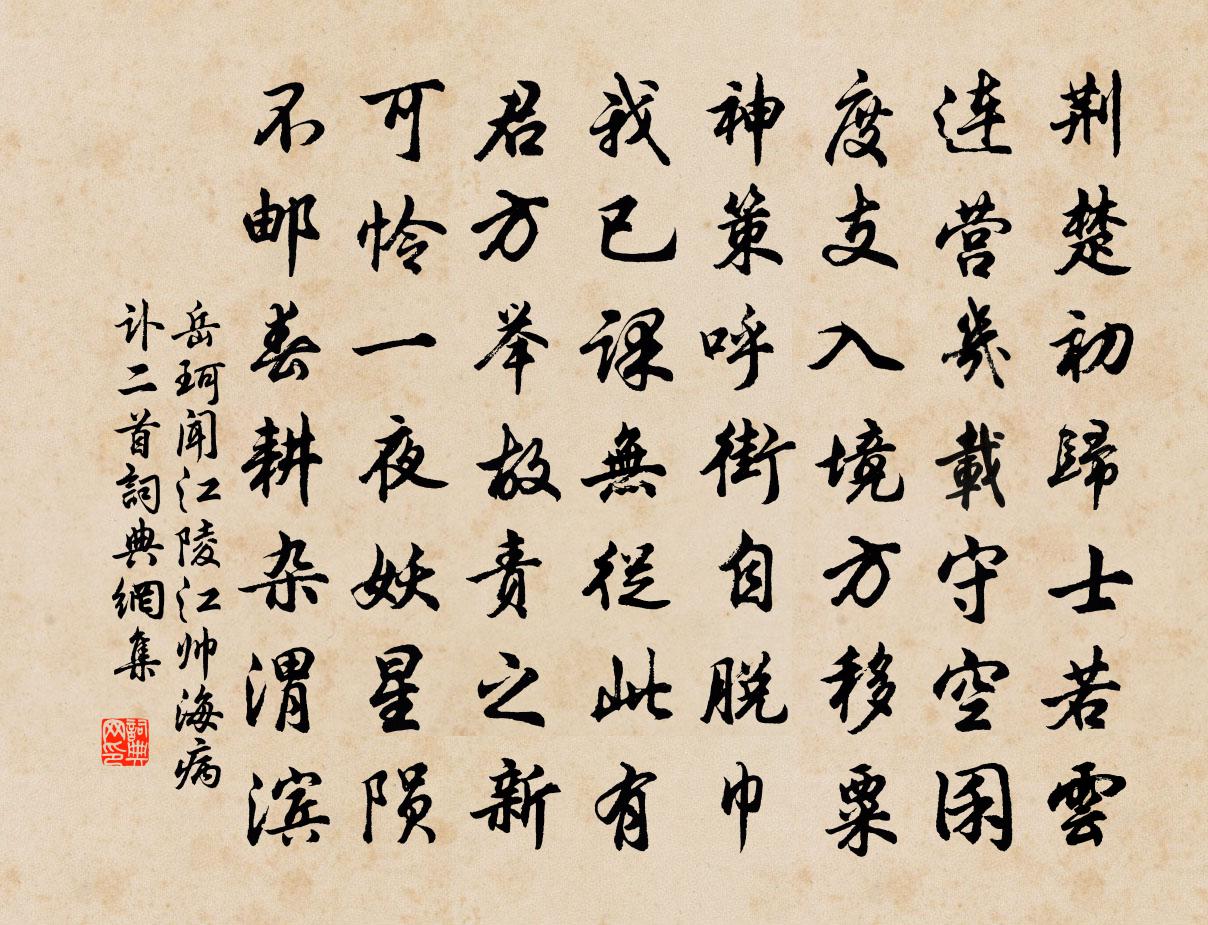 荆楚初歸士若雲
連营幾載守空囷
度支入境方移粟
神策呼街自脱巾
我已課無從此有
君方举故責之新
可怜一夜妖星陨
不邮春耕杂渭滨
岳珂聞江陵江帅海病
讣二首詞典網集
詞典
网印